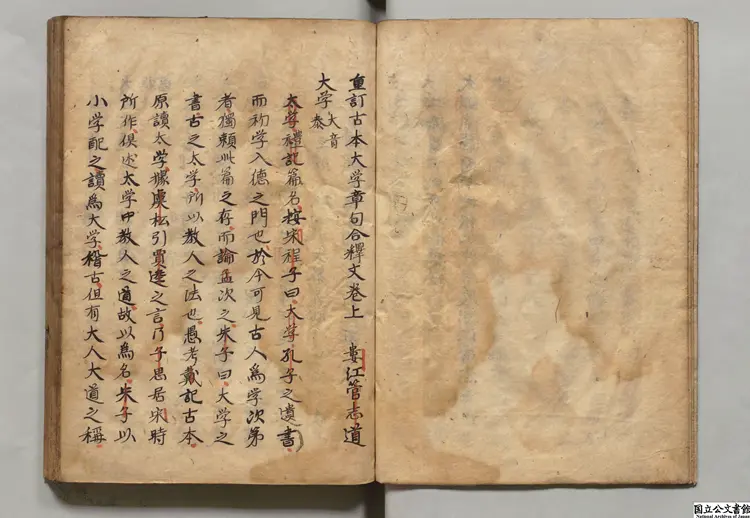 重訂古本大学章句合釋文卷上
婁江管志道
大学 大音
泰
太学禮記篇名按宋程子曰大学孔子之遺書
而初学入德之門也於今可見古人為学次第
者獨頼此篇之存而論孟次之朱子曰大学之
書古之太学所以教人之法也愚考戴記古本
原讀太学據虞松引賈逵之言乃子思居宋時
所作俱述太学中教人之道故以為名朱子以
小学配之讀為大学稽古但有大人大道之稱
国立公文書館
National Archives of Japan